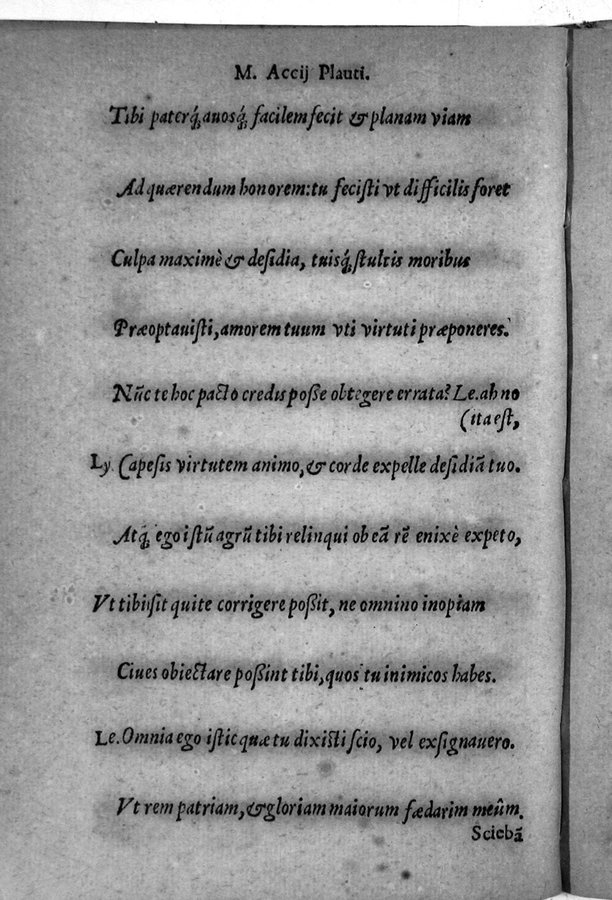 M. Accij Plauti.
Tibi paterq́ꝫ auosq́ꝫ facilem fecit & planam viam
Ad quærendum honorem: tu feciſti vt difficilis foret
Culpa maximè & deſidia, tuisq́ꝫ ſtultis moribus
Præoptauiſti, amorem tuum vti virtuti præponeres.
Nũc te hoc pacto credis poſſe obtegere errata? Le. ah no
(ita eſt,
Ly Capeſis virtutem animo, & corde expelle deſidiã tuo.
Atq́ꝫ ego iſtũ agrũ tibi relinqui ob eã rẽ enixè expeto,
Vt tibi ſit qui te corrigere poßit, ne omnino inopiam
Ciues obiectare poßint tibi, quos tu inimicos habes.
Le. Omnia ego iſtic quæ tu dixiſti ſcio, vel exſignauero.
Vt rem patriam, & gloriam maiorum fædarim meûm.
Sciebã